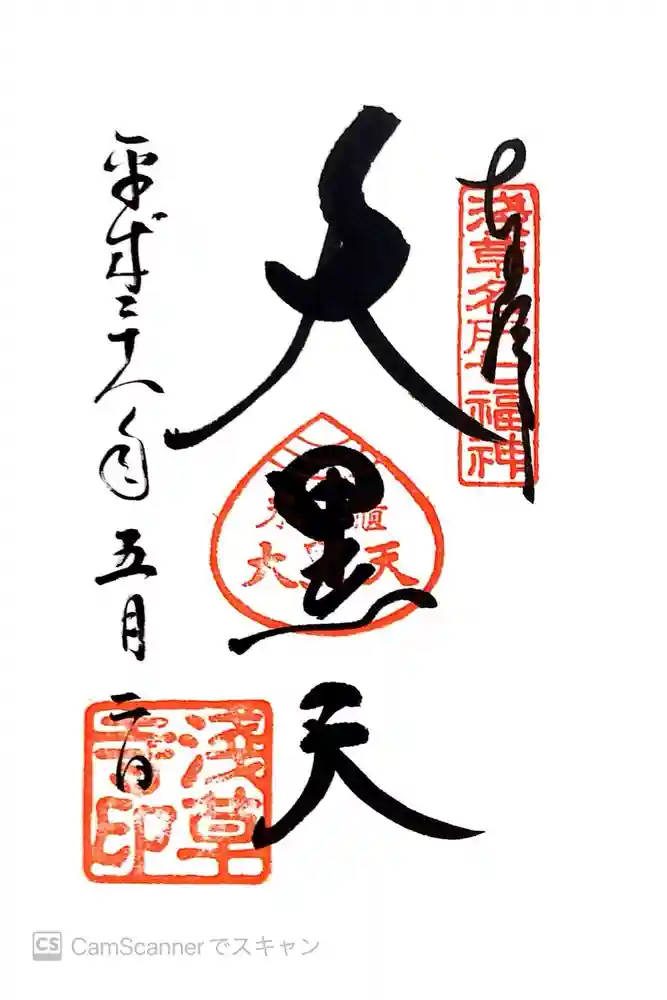 奉拝
浅草名所七福神
大黒天
大黒天
平成二十八年五月二日
浅草
寺印
CS CamScannerでスキャン